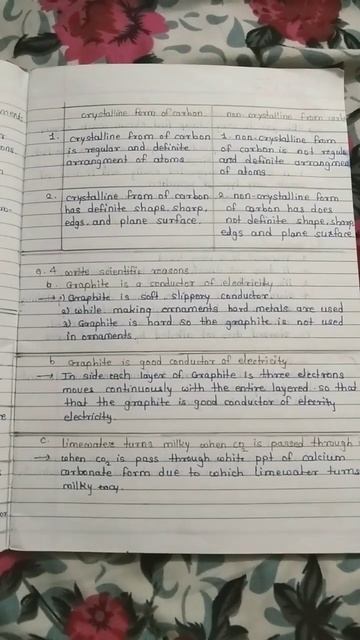 crystalline form of carbon
non-crystalline from
1. crystalline from of carbon
is regular and definite
arrangment of atoms
1 non-crystalline from
of carbon is not regular
and definite arrangmen
of atoms.
2. crystalline from of carbon
has definite shape, sharp,
edgs. and plane surface.
2 non-crystalline form
of carbon has does
not definite shape, sharp
edgs and plane surface.
Q. 4 write scientific reasons
a. Graphite is a conductor of electricity
→ 1) Graphite is soft, slippery conductor.
2) while making ornaments hard metals are used
3) Graphite is hard so the graphite is not used
in ornaments.
b Graphite is good conductor of electricity.
→ In side each layer of Graphite is three electrons
moves continuously with the entire layered. so that
that the graphite is good conductor of
electricity.
c. limewater turns milky when co2 is passed through
→ when co2 is pass through white ppt of calcium
carbonate form due to which limewater turns
milky